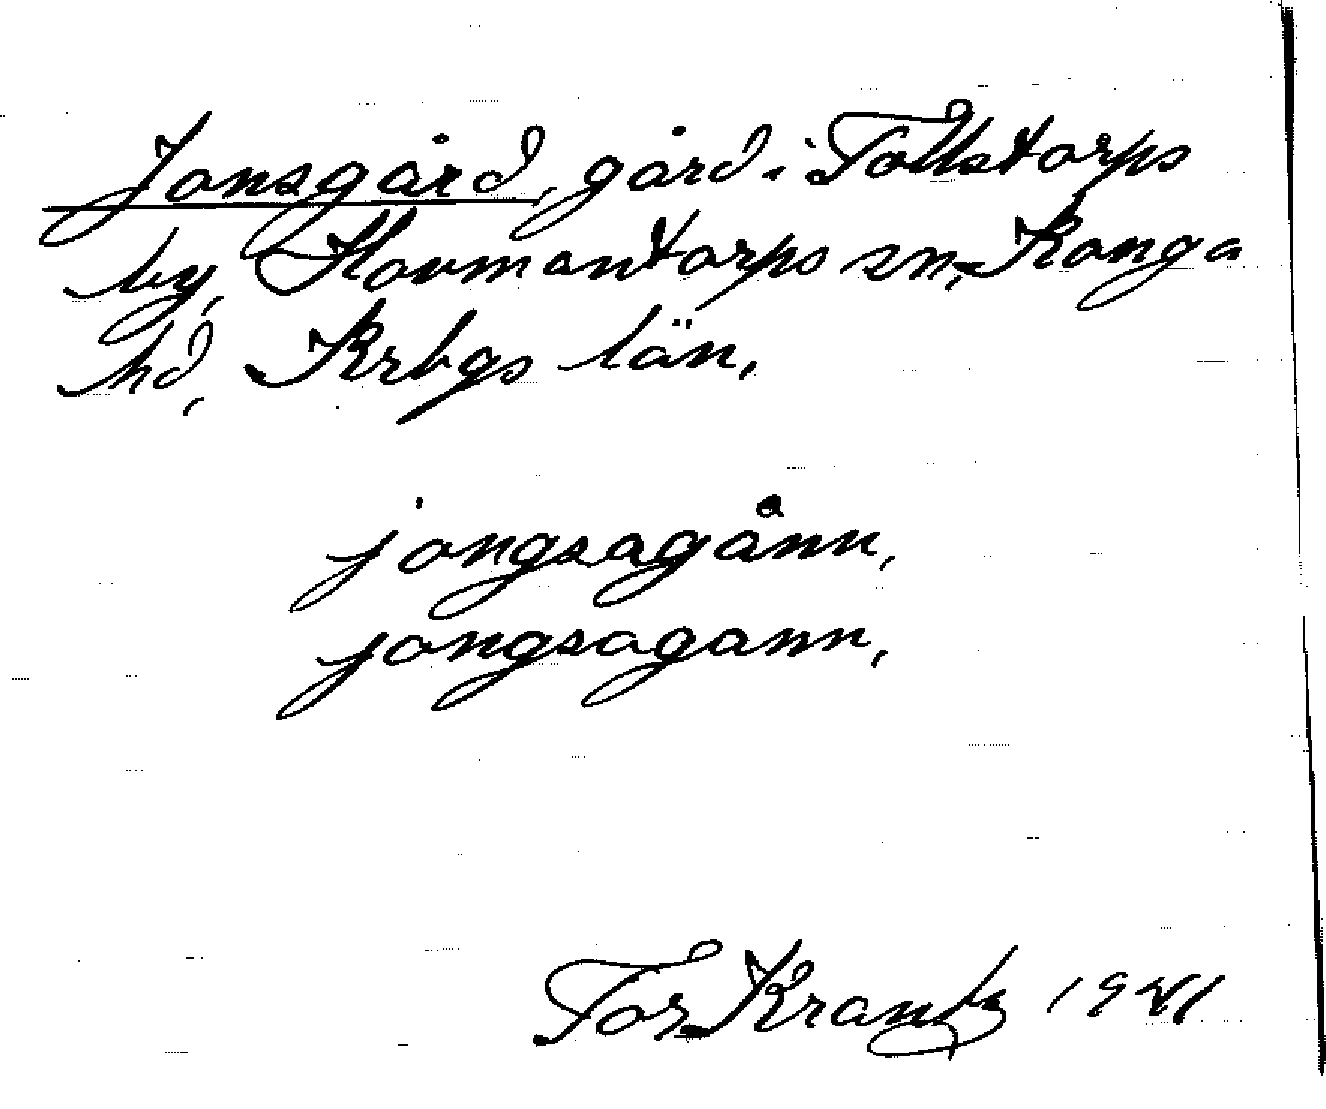 Jonsgård, gård i Tollstorps
by, Hovmantorps sn, Konga
hd, Krbgs län,
jongsagånn,
jongsagann,
Tor Krantz 1941